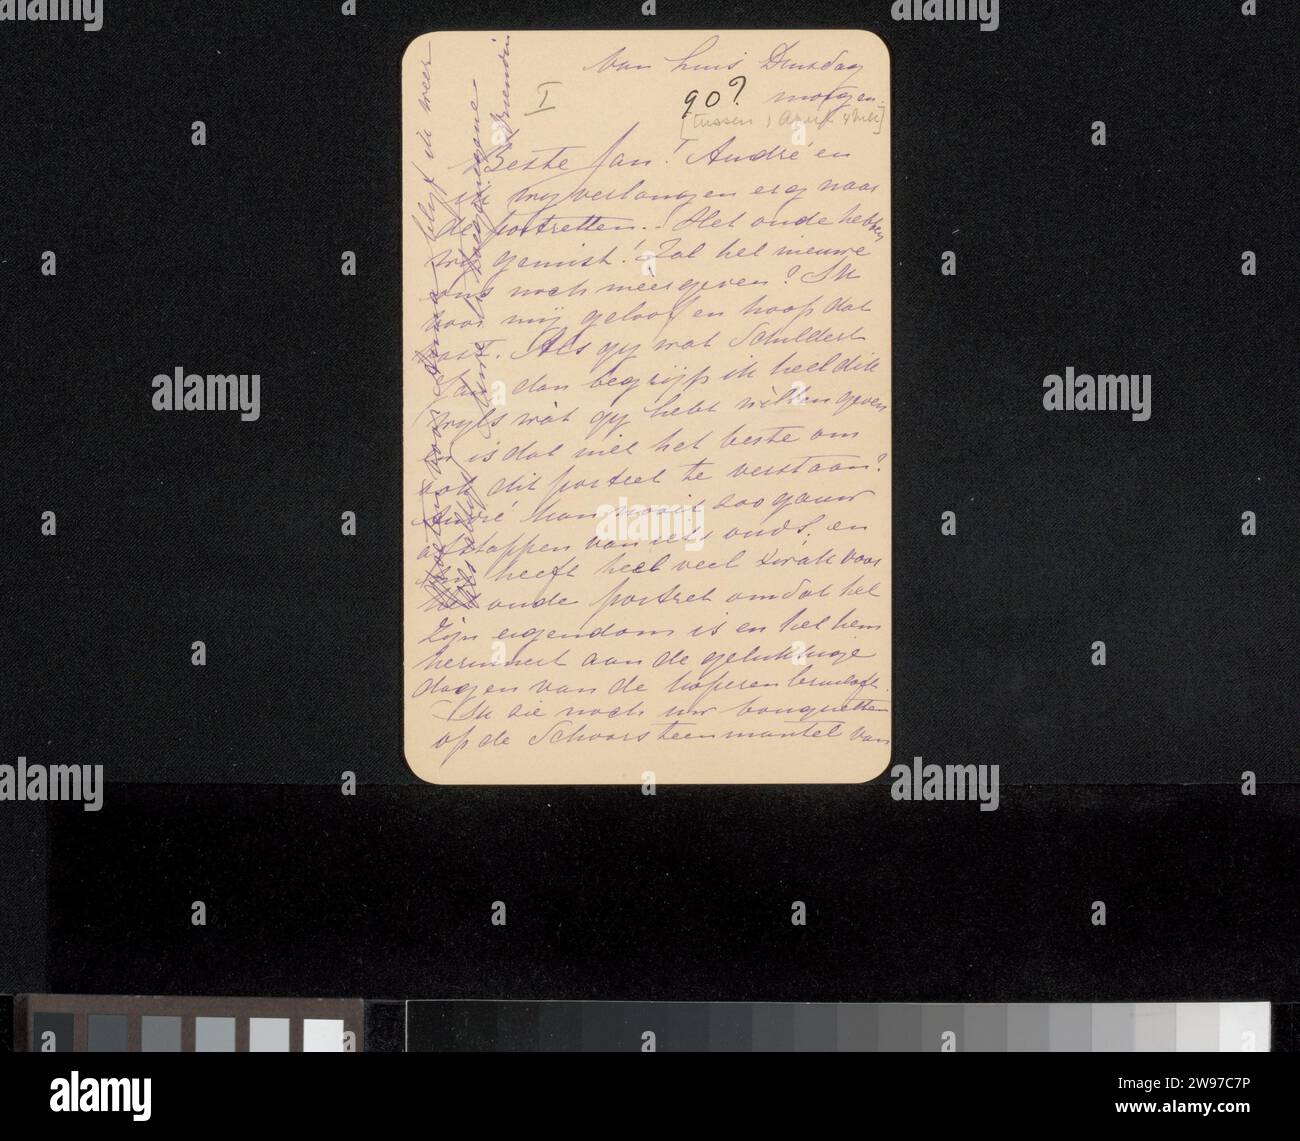 Van huis Dinsdag
morgen.
I
90?
[tussen 1 April
Beste Jan! André en
ik wy verlangen erg naar
de portretten.. Het oude hebben
wy gemist! Zal het nieuwe
ons noch méér geven? Ik
voor mij geloof en hoop dat
vast. Als gy wat Schildert
Jan dan begrijp ik heel dik
wyls wàt gy hebt willen geven
en is dat niet het beste om
ook dit portret te verstaan?
André kan nooit zoo gauw
afstappen van iets ouds, en
heeft heel veel zwak voor
het oude portret omdat het
Zijn eigendom is en het hem
herinnert aan de gelukkige
dagen van de koperen bruiloft.
Ik zie noch uw bouquetten
op de Schoorsteenmantel van
blijf ik weer
Vriendin
alamy
Image ID: 2W97C7P
www.alamy.com